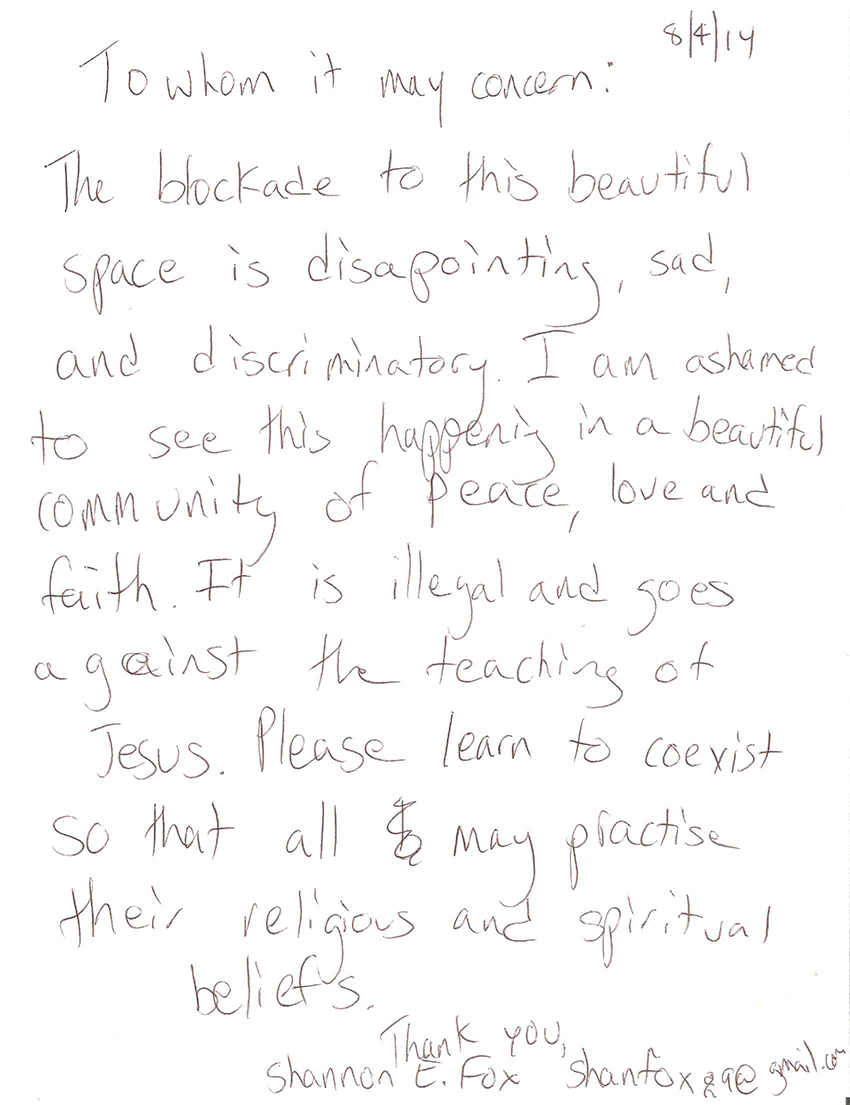 8/4/14
To whom it may concern:
The blockade to this beautiful
space is disapointing, sad,
and discriminatory. I am ashamed
to see this happenig in a beautiful
community of peace, love and
faith. It is illegal and goes
against the teaching of
Jesus. Please learn to coexist
so that all may practise
their religious and spiritual
beliefs.
Thank you,
Shannon E. Fox shanfox89@gmail.com